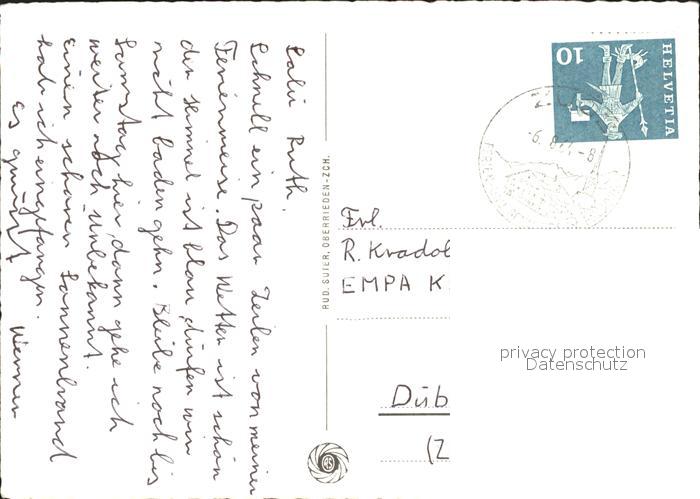 Salü Ruth.
Schnell ein paar Zeilen von meiner
Ferienreise. Das Wetter ist schön
der Himmel ist blau, dürfen wir
nicht baden gehn. Bleibe noch bis
Samstag hier, dann gehe ich
weiter noch unbekannt.
Einen schönen Sonnenbrand
hab ich eingefangen.
Es grüsst Werner
RUD. SUTER, OBERRIEDEN-ZCH.
HELVETIA
10
-6. 8 -8
Frl.
R. Kradol
EMPA K
privacy protection
Datenschutz
Düb
(Z